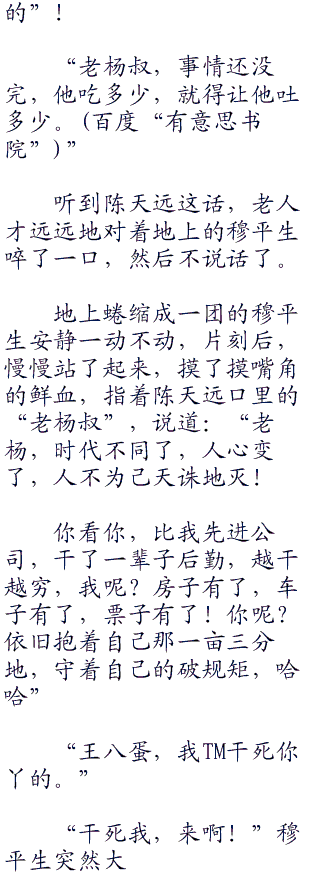 的”！
“老杨叔，事情还没
完，他吃多少，就得让他吐
多少。(百度“有意思书
院”)”
听到陈天远这话，老人
才远远地对着地上的穆平生
啐了一口，然后不说话了。
地上蜷缩成一团的穆平
生安静一动不动，片刻后，
慢慢站了起来，摸了摸嘴角
的鲜血，指着陈天远口里的
“老杨叔”，说道：“老
杨，时代不同了，人心变
了，人不为己天诛地灭！
你看你，比我先进公
司，干了一辈子后勤，越干
越穷，我呢？房子有了，车
子有了，票子有了！你呢？
依旧抱着自己那一亩三分
地，守着自己的破规矩，哈
哈”
“王八蛋，我TM干死你
丫的。”
“干死我，来啊！”穆
平生突然大